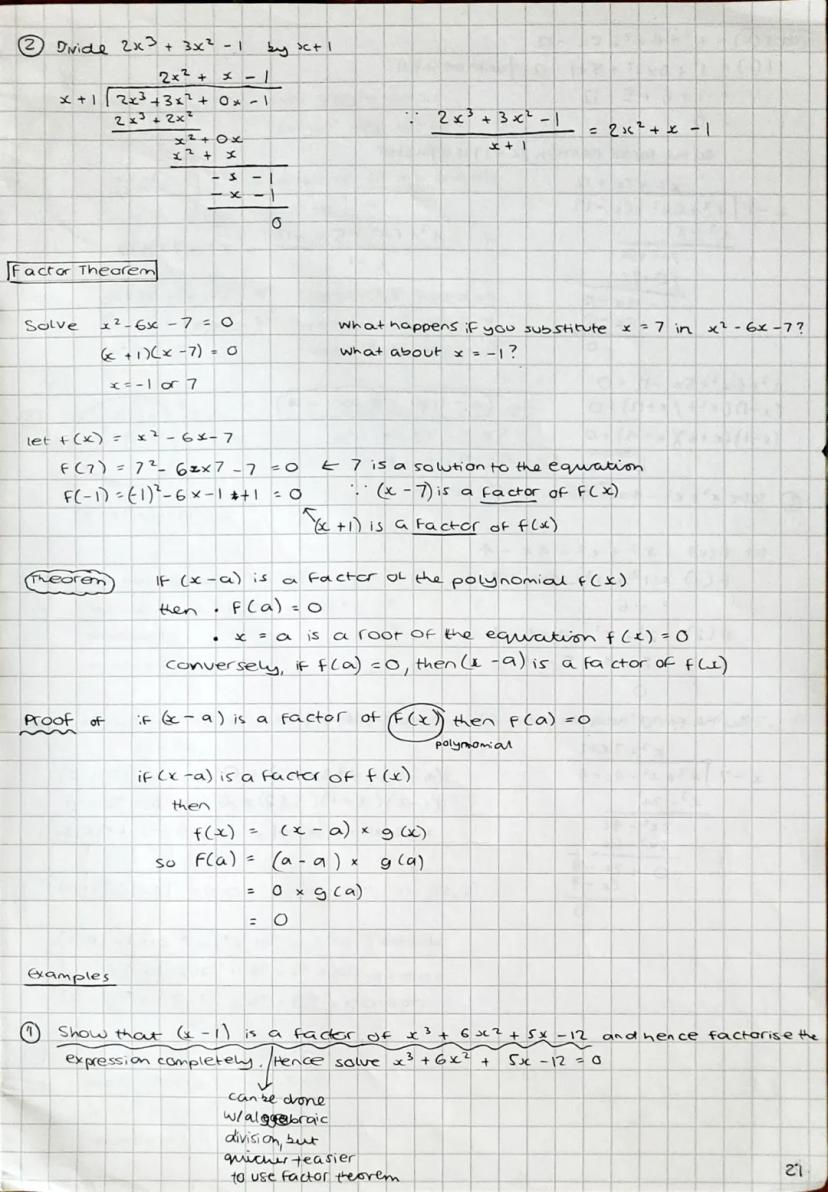 ② Divide 2x³ + 3x² - 1 by x+1
2x² + x - 1
x + 1 | 2x³ + 3x² + 0x - 1
2x³ + 2x²
x² + 0x
x² + x
- x - 1
- x - 1
0
∵ (2x³ + 3x² - 1)/(x+1) = 2x² + x - 1
Factor Theorem
Solve x² - 6x - 7 = 0
(x + 1)(x - 7) = 0
x = -1 or 7
What happens if you substitute x = 7 in x² - 6x - 7?
What about x = -1?
let f(x) = x² - 6x - 7
f(7) = 7² - 6 x 7 - 7 = 0 ← 7 is a solution to the equation
f(-1) = (-1)² - 6 x -1 + 1 = 0 ∵ (x - 7) is a factor of f(x)
(x + 1) is a factor of f(x)
Theorem If (x - a) is a factor of the polynomial f(x)
then • f(a) = 0
• x = a is a root of the equation f(x) = 0
conversely, if f(a) = 0, then (x - a) is a factor of f(x)
Proof of if (x - a) is a factor of f(x) then f(a) = 0
polynomial
if (x - a) is a factor of f(x)
then
f(x) = (x - a) × g(x)
so f(a) = (a - a) × g(a)
= 0 × g(a)
= 0
Examples
① Show that (x - 1) is a factor of x³ + 6x² + 5x - 12 and hence factorise the
expression completely. Hence solve x³ + 6x² + 5x - 12 = 0
can be done
w/ algebraic
division, but
quicker + easier
to use factor theorem
27